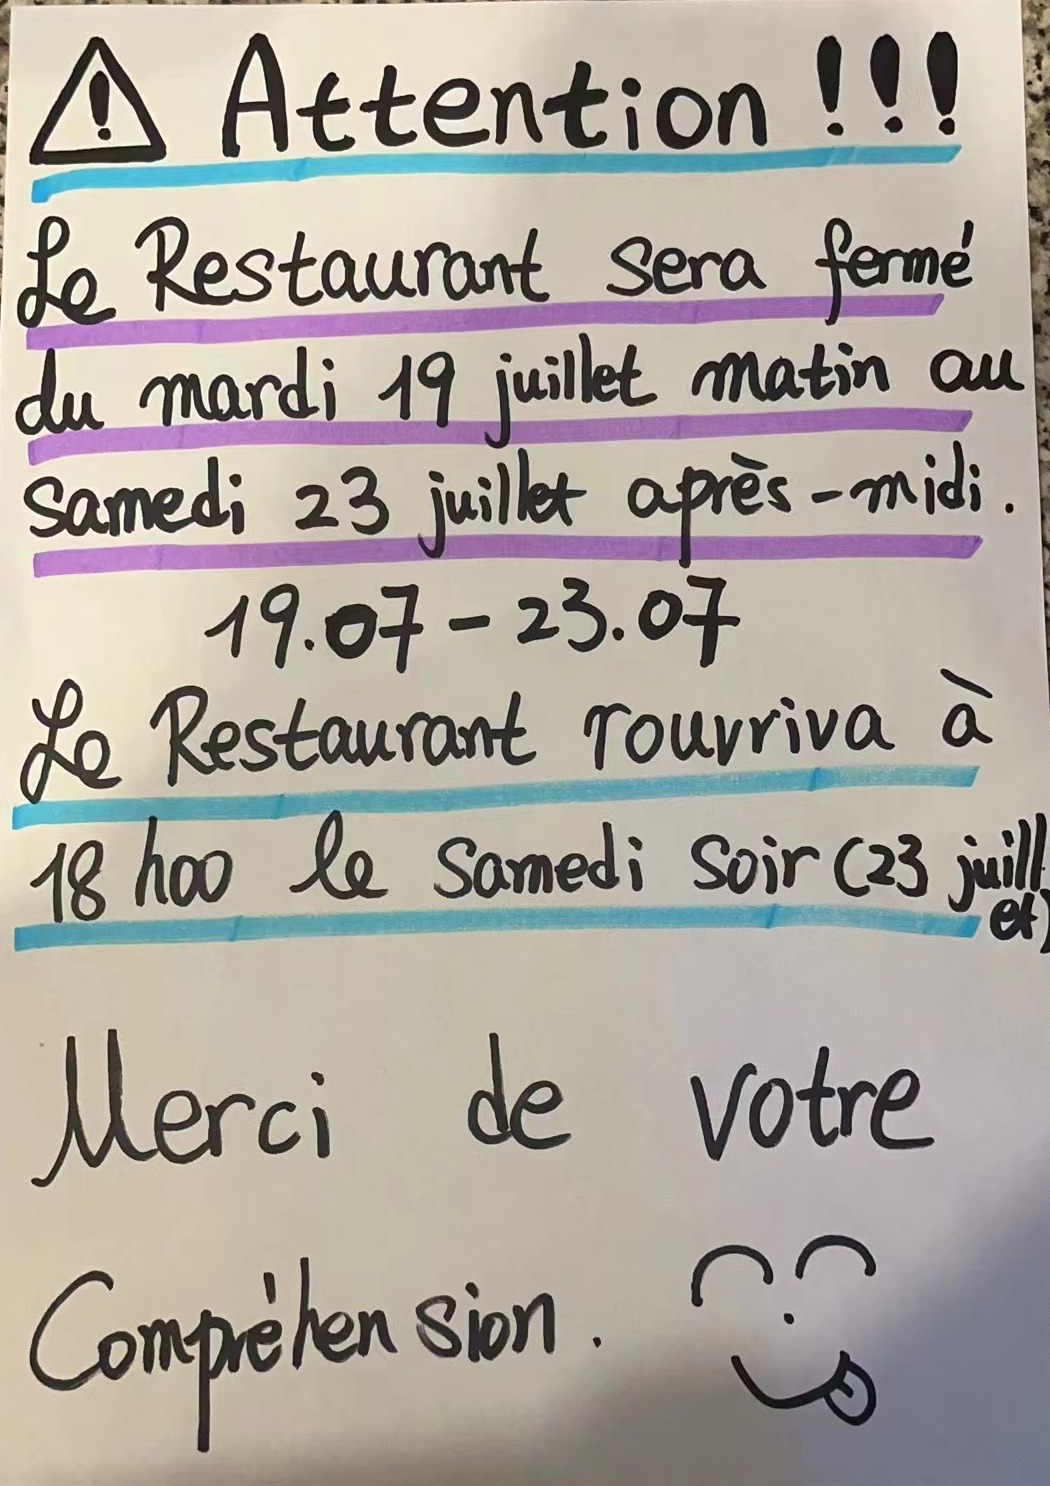 Attention !!!
Le Restaurant sera fermé
du mardi 19 juillet matin au
samedi 23 juillet après-midi.
19.07 - 23.07
Le Restaurant rouvriva à
18 h00 le samedi soir (23 juill
et)
Merci de votre
Compréhension.